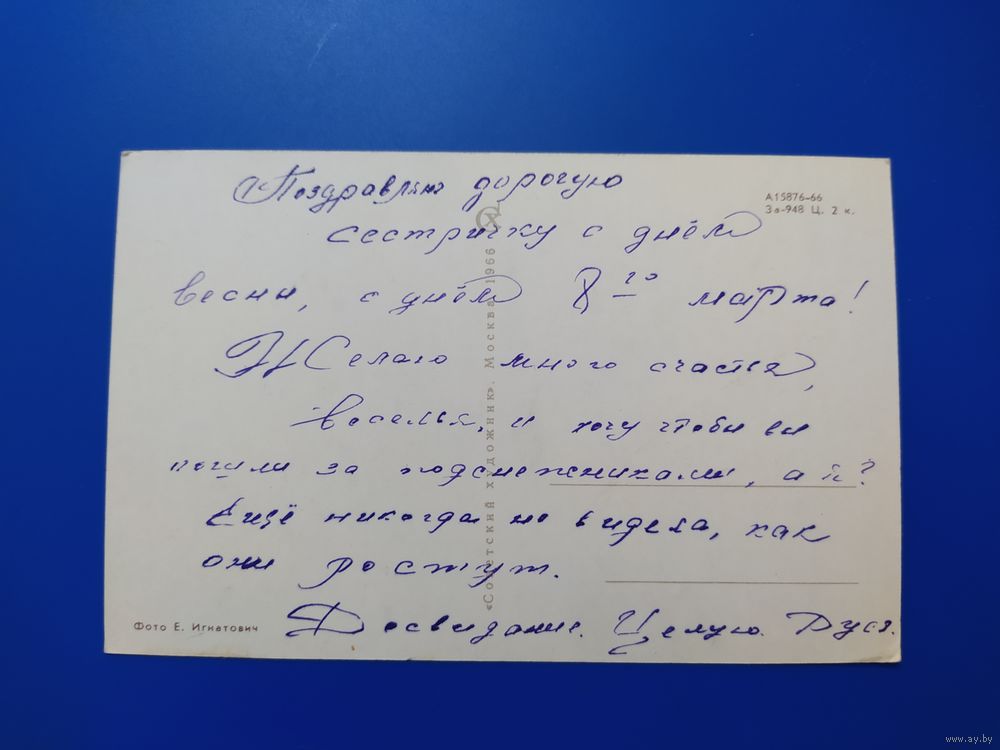 Поздравляю дорогую
А15876-66
Зв-948 Ц. 2 к.
сестричку с днём
весны, с днём 8 го марта!
Желаю много счастья,
веселья, и хочу чтобы вы
пошли за подснежниками, а
Ещё никогда не видела, как
они ростут.
Досвидание. Целую. Дуся.
«Советский художник». Москва 1966
Фото Е. Игнатович
www.ay.by